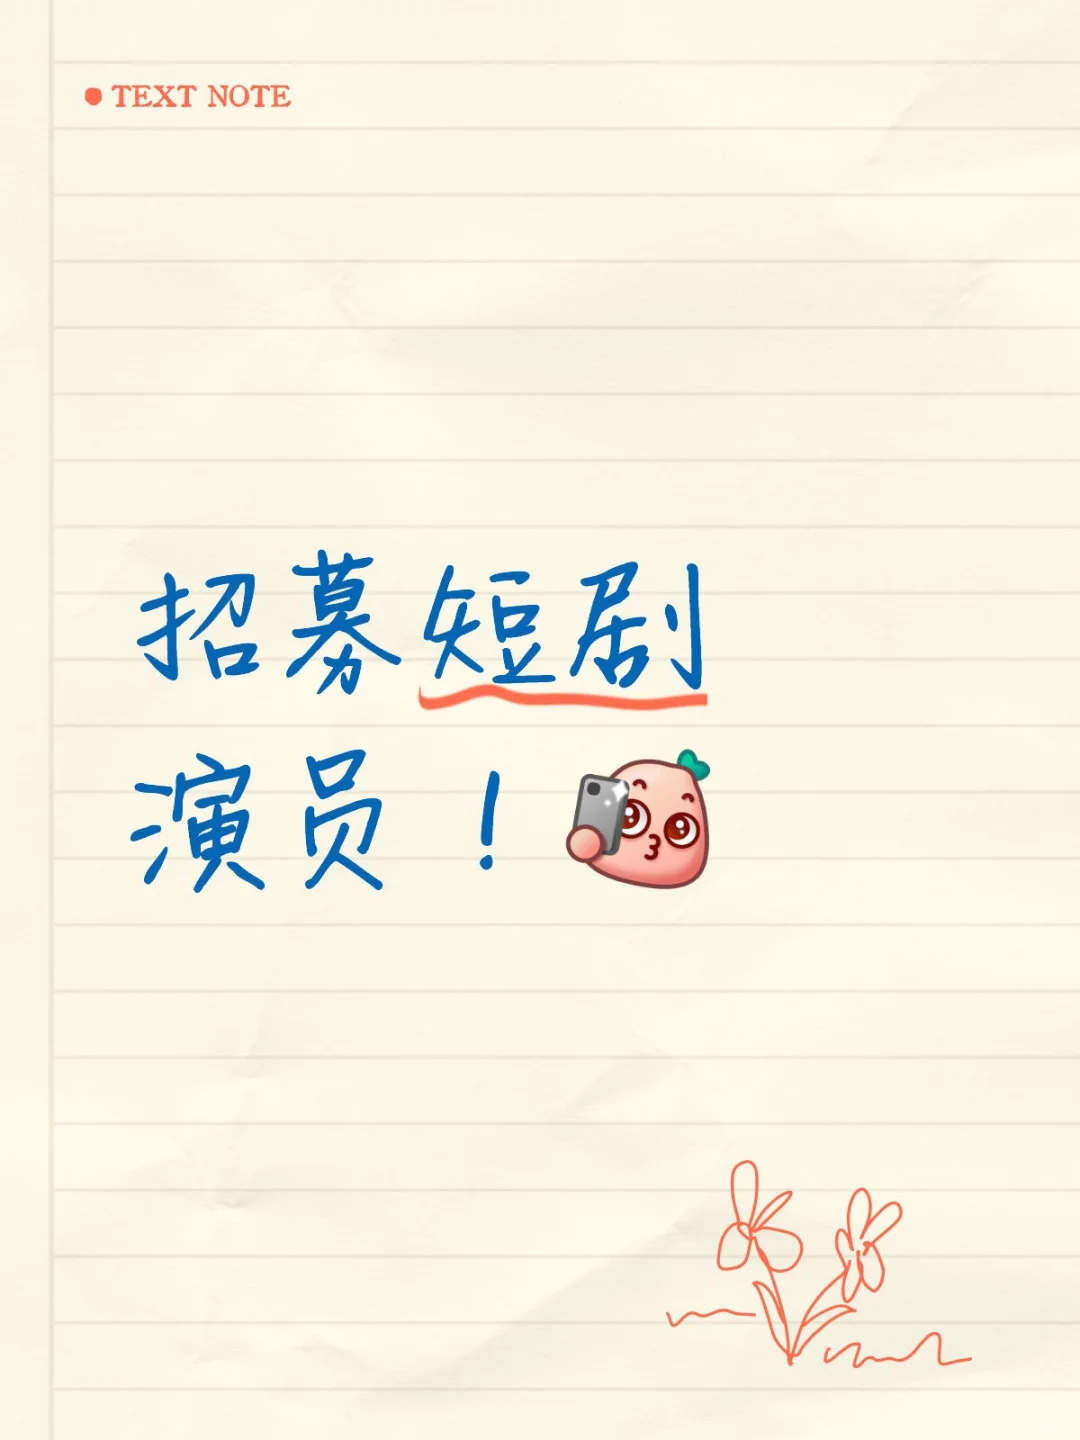 TEXT NOTE
招募短剧
演员！